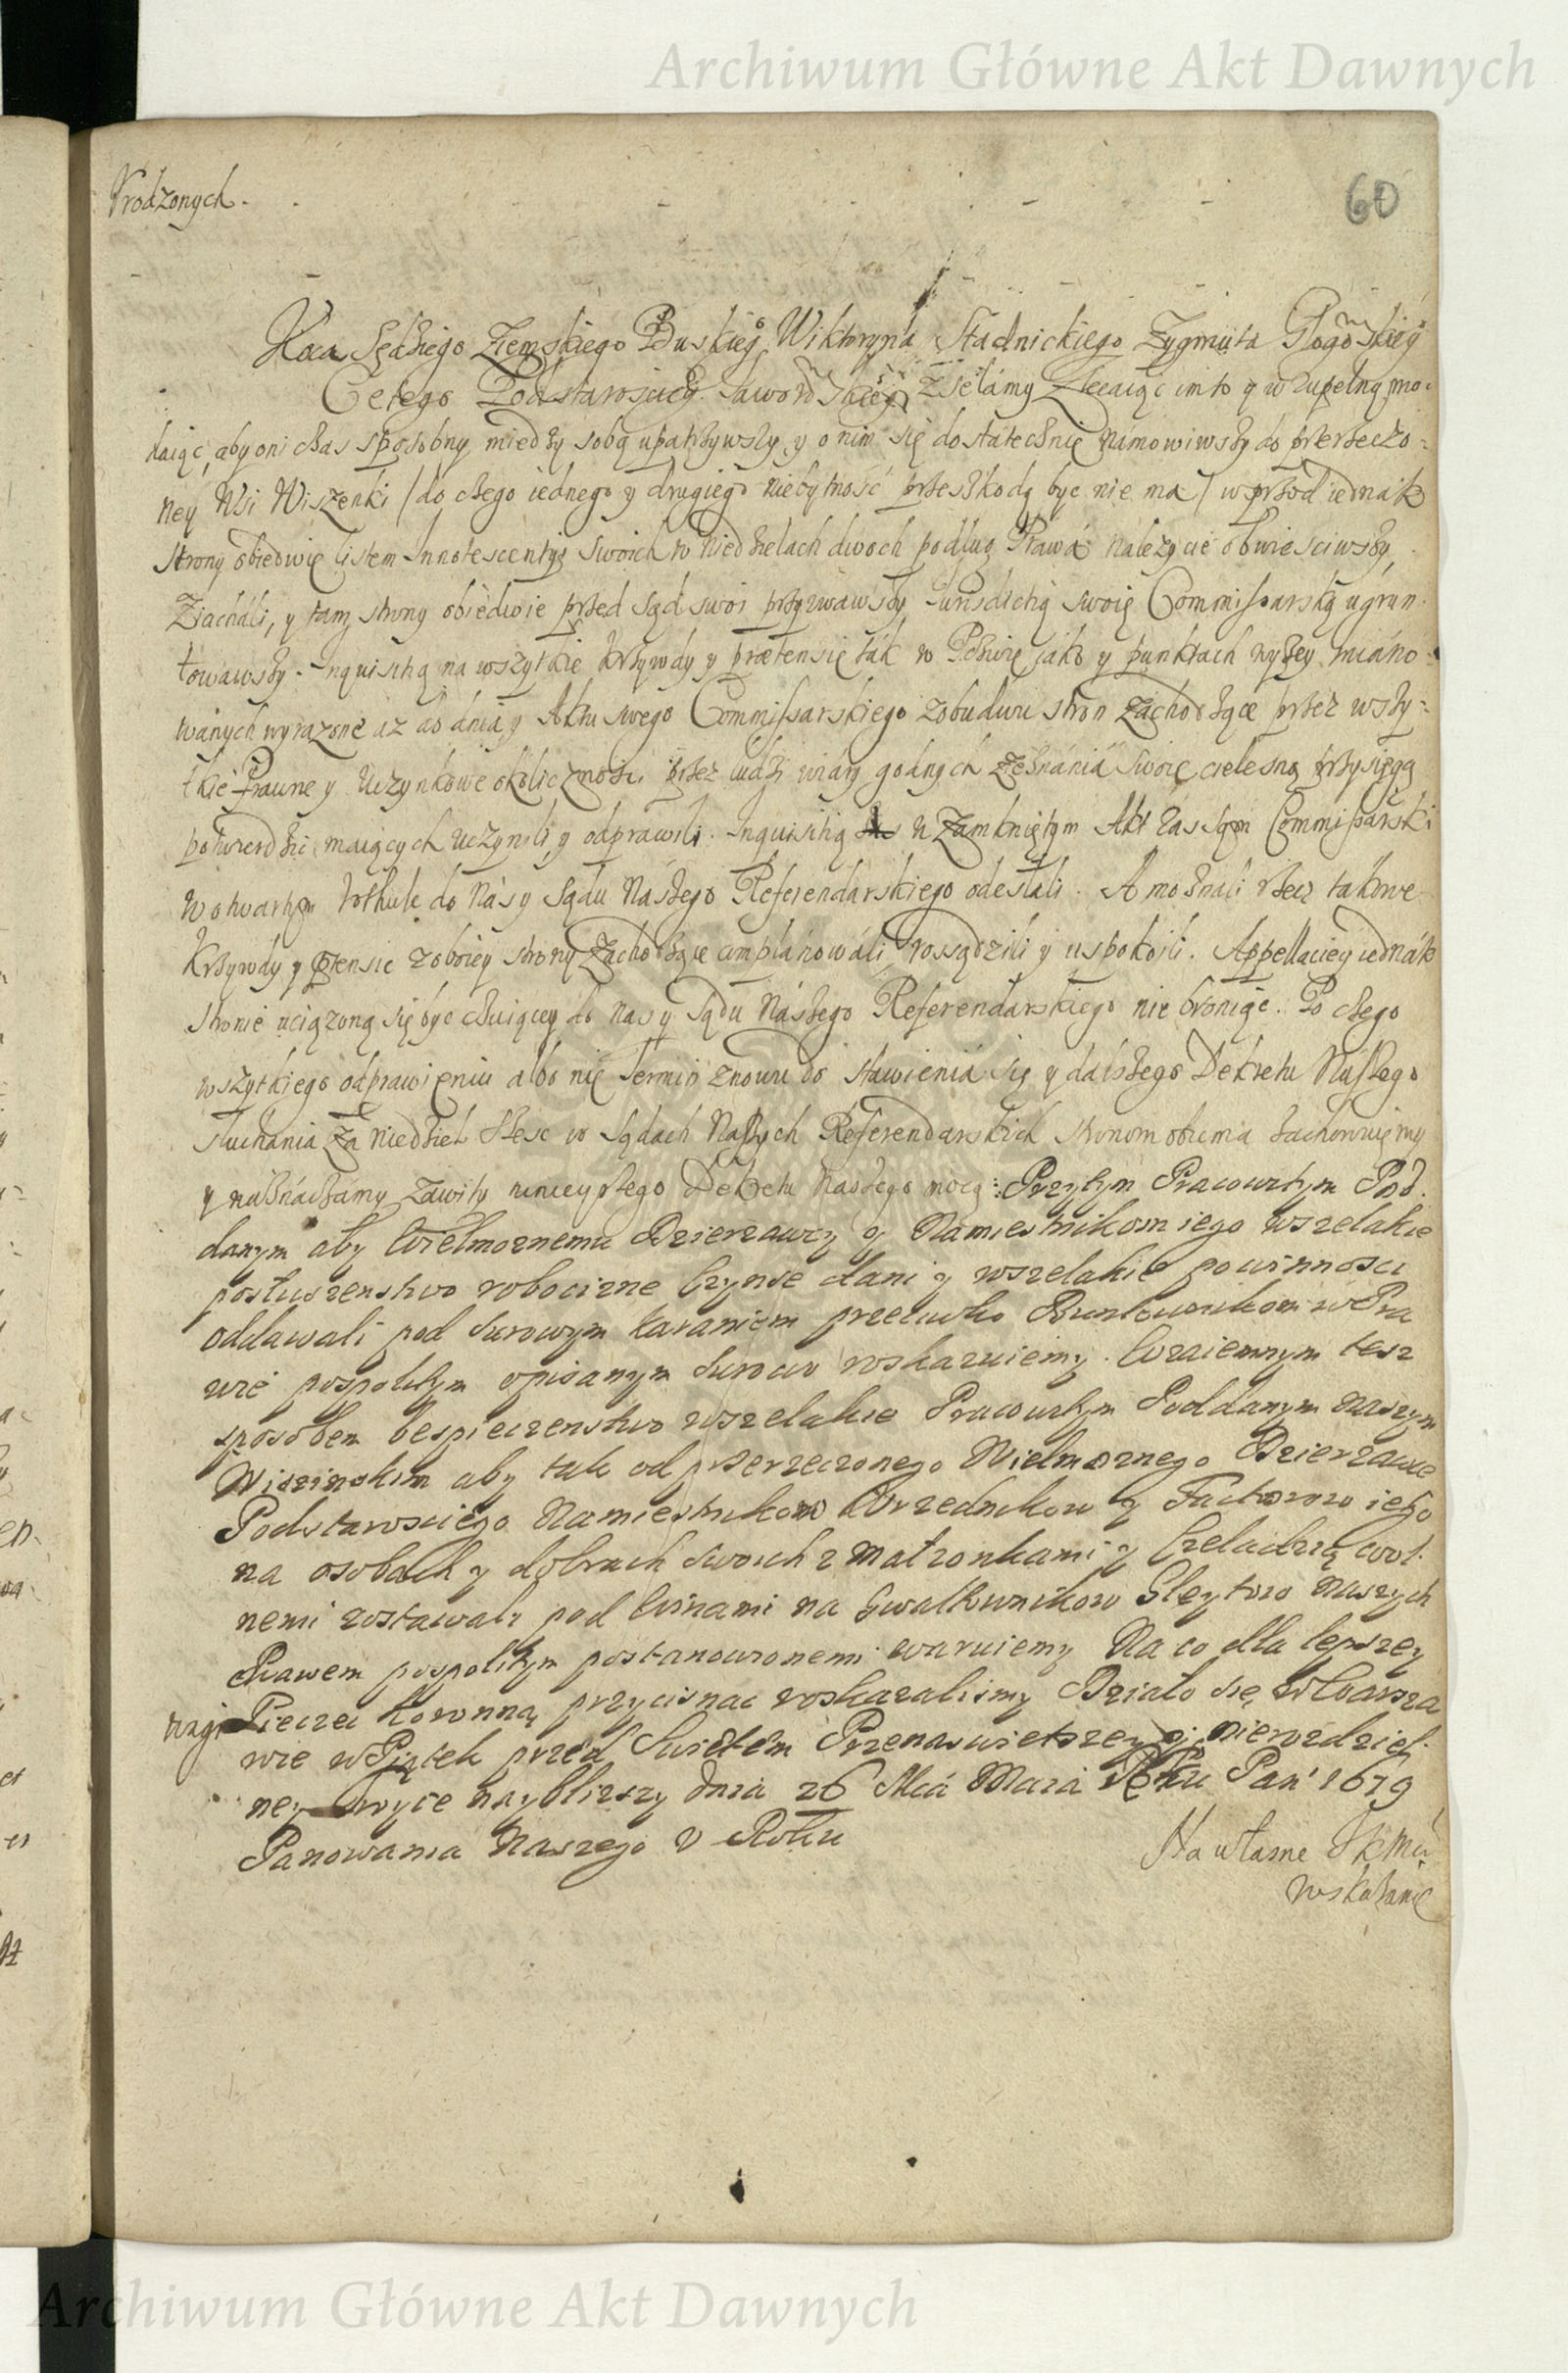 Archiwum Główne Akt Dawnych
Vrodzonych.
60
Sędziego Ziemskiego Wiktoryna Stadnickiego Zygmuta
Cetego zsełamy Zlecaiąc im to y w Zupełną moc
daiąc, aby oni czas sposobny miedzy sobą upatrzywszy, y o nim się dostatecznie námowiwszy do przerzeczo-
ney Wsi Wiszenki / do czego iednego y drugiego niebytność przeszkodą byc nie ma / wprzod iednák
strony obiedwie listem Innotescentyi swoich w niedzielach dwoch podług Práwá należycie obwiesciwszy,
Ziacháli, y tam strony obiedwie przed sąd swoi przyzwawszy Iurisdictią swoię Commissarską ugrun-
towawszy. Inquisitią na wszytkie krzywdy y prætensie ták w Pozwie iáko y punktach wyżey miáno-
wánych wyrazone az do dnia y Aktu swego Commissarskiego zobudwu stron zachodzące przez wszy-
tkie prawne y uczynkowe okoliczności przez ludzi wiáry godnych zeznánia swoię cielesną przysięgą
potwierdzić maiących uczynili y odprawili. Inquisitią w zamkniętym Akt zasię Commissarski
w otwartym rotkule do Nás y Sądu Nászego Referendarskiego odesłali. A moznali rzecz takowe
krzywdy y ptensie z oboiey strony zachodzące complánowáli, rossądzili y uspokoili. Appellaciey iednák
stronie uciązoną się byc czuiącey do Nas y Sądu Nászego Referendarskiego nie broniąc. Po czego
wszytkiego odprawieniu albo nie termin znowu do stawieniá się y dalszego Dekretu Nászego
słuchania za niedziel szesc w Sądach Naszych Referendarskich stronom obiema zachowuiemy
y náznáczámy zawity ninieyszego Dekretu Naszego mocą. Przytym Pracowitym Pod-
danym aby Wielmoznemu Dzierzawcy y Namiestnikom iego wszelakie
posłuszenstwo robocizne Czynsze dani y wszelakie powinnosci
oddawali pod surowym karaniem przeciwko Buntownikom w Pra
wie pospolitym opisanym surowo roskazuiemy. Wzaiemnym tesz
sposobem bespieczenstwo wszelakie Pracowitym Poddanym naszym
Wiszinskim aby tak od przerzeczonego Wielmoznego Dzierzawce
Podstarosciego Namiestnikow Urzednikow y Factorow iego
na osobach y dobrach swoich z matzonkami y Czeladzią wol-
nemi zostawali pod winami na Gwałtownikow Gleytow naszych
Prawem pospolitym postanowionemi waruiemy Na co dla lepszey
wagi Pieczec Koronną przycisnac roskazalismy Działo się w Warsza
wie w Piątek przed Swietem Przenaswietszey y nierozdziel-
ney Troyce nayblizszy dnia 26 Mca Maia Roku Pan 1679
Panowania Naszego V Roku
Na własne JKMci
roskazanie
Archiwum Główne Akt Dawnych